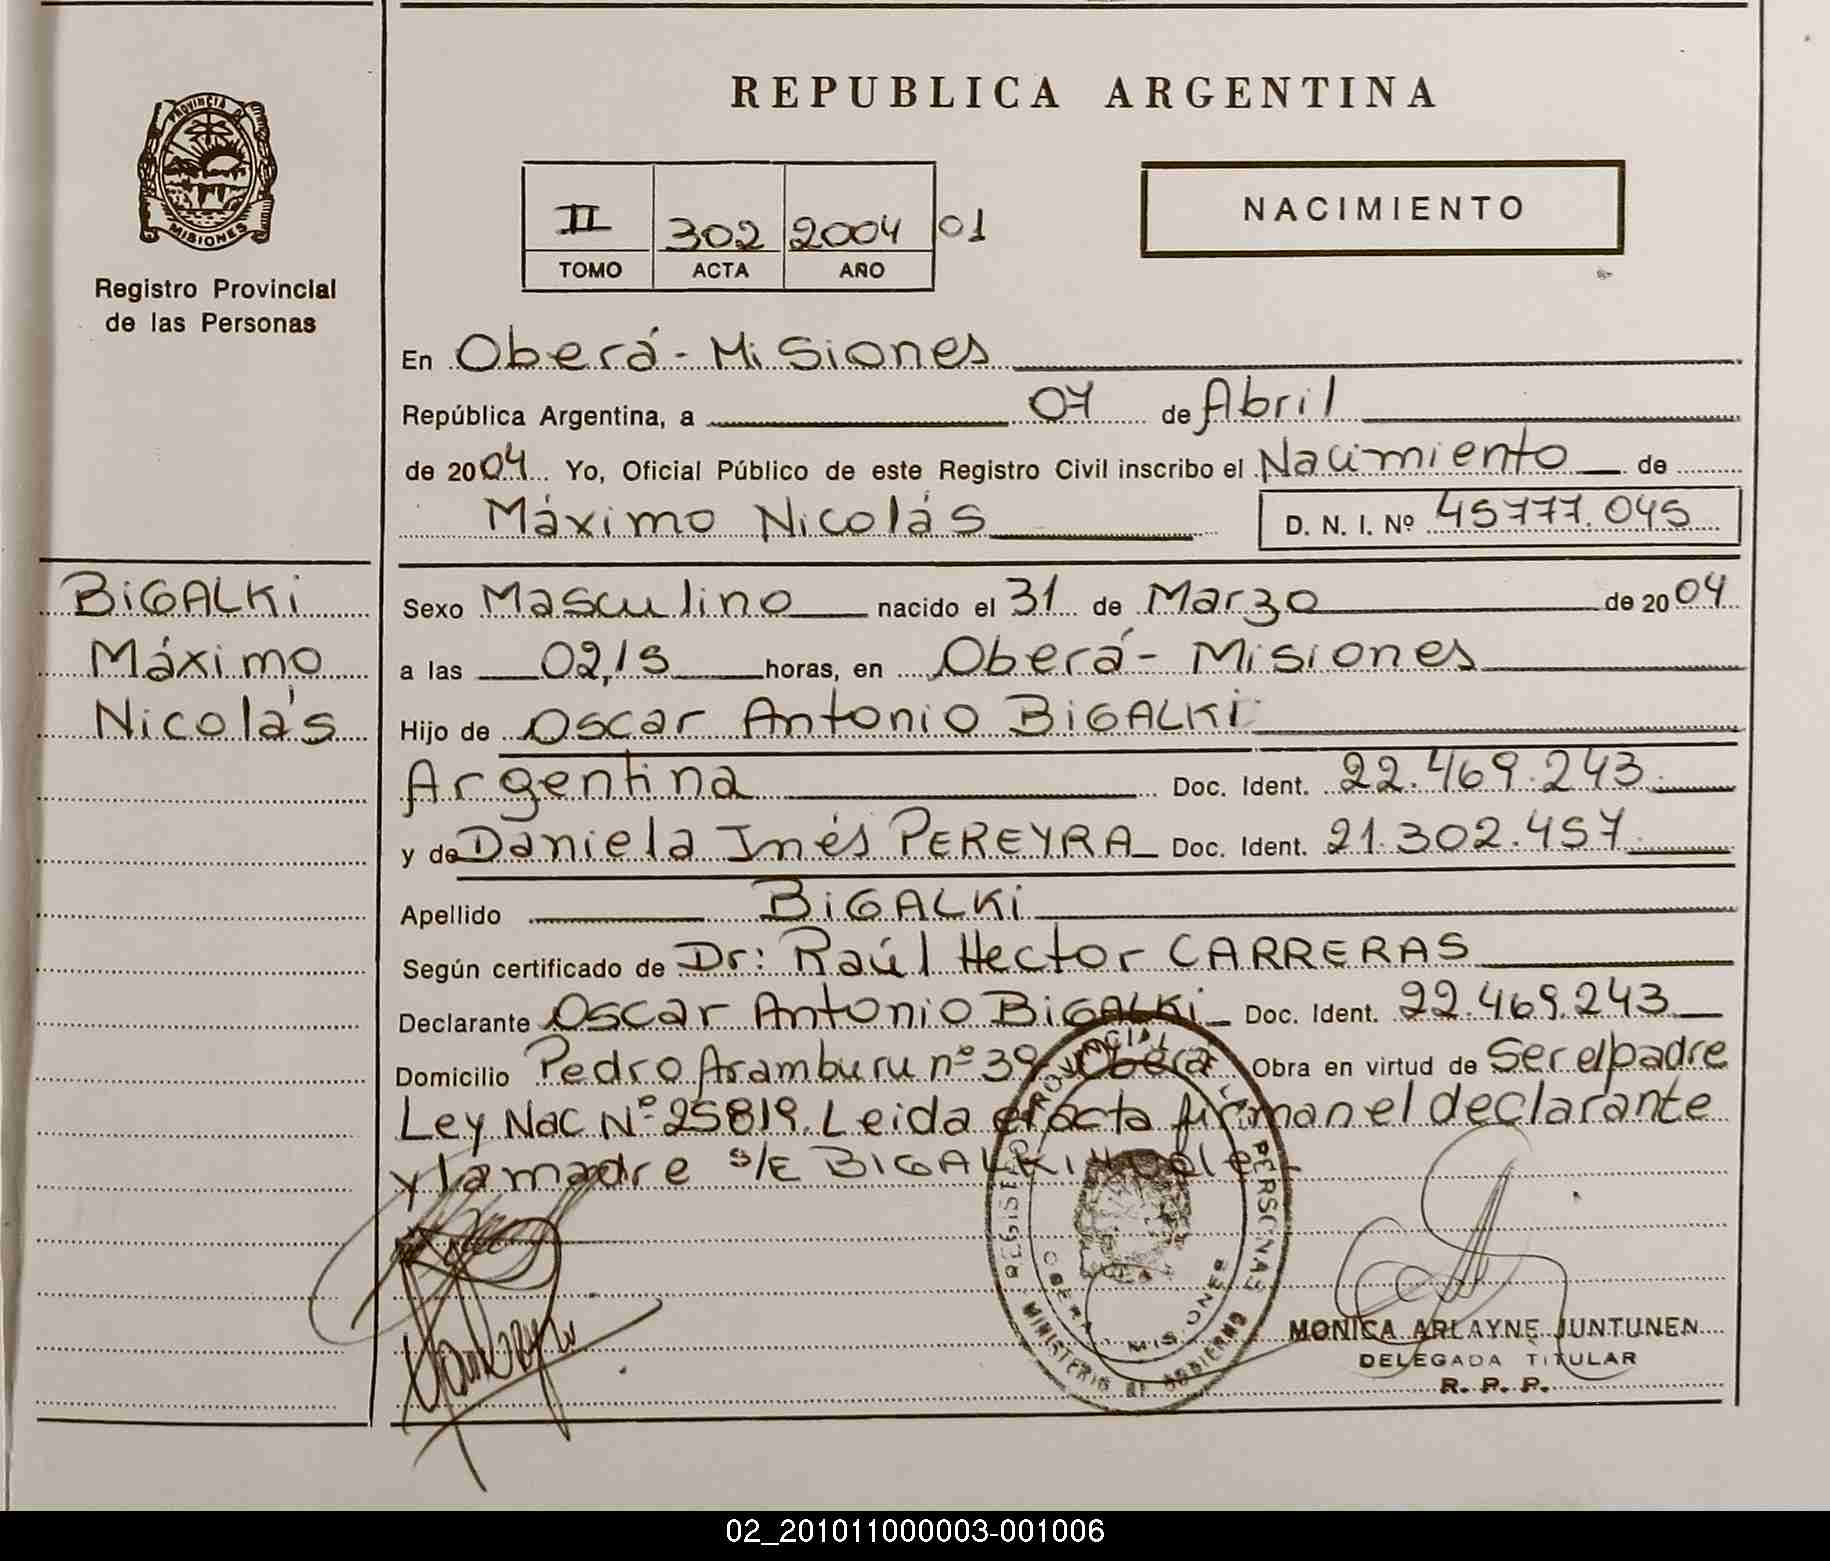 REPUBLICA ARGENTINA
PROVINCIA D
MISIONES
Registro Provincial
de las Personas
II 302 2004 01
TOMO ACTA AÑO
NACIMIENTO
En Oberá - Misiones
República Argentina, a 07 de Abril
de 2004 Yo, Oficial Público de este Registro Civil inscribo el Nacimiento de
Máximo Nicolás D. N. I. Nº 45777.045
BiGALKi
Máximo
Nicolás
Sexo Masculino nacido el 31 de Marzo de 2004
a las 02,15 horas, en Oberá - Misiones
Hijo de Oscar Antonio BiGALKi
Argentina Doc. Ident. 22.469.243
y de Daniela Inés PEREYRA Doc. Ident. 21.302.457
Apellido BiGALKi
Según certificado de Dr: Raúl Hector CARRERAS
Declarante Oscar Antonio BiGALKi Doc. Ident. 22.469.243
Domicilio Pedro Aramburu nº 39 Oberá Obra en virtud de Ser el padre
Ley Nac Nº 25819. Leida el acta firman el declarante
y la madre s/E BIGALKI vale
REGISTRO PROVINCIAL PERSONAS
OBERA - MISIONES
MINISTERIO DE GOBIERNO
MONICA ARLAYNE JUNTUNEN
DELEGADA TITULAR
R. P. P.
02_201011000003-001006